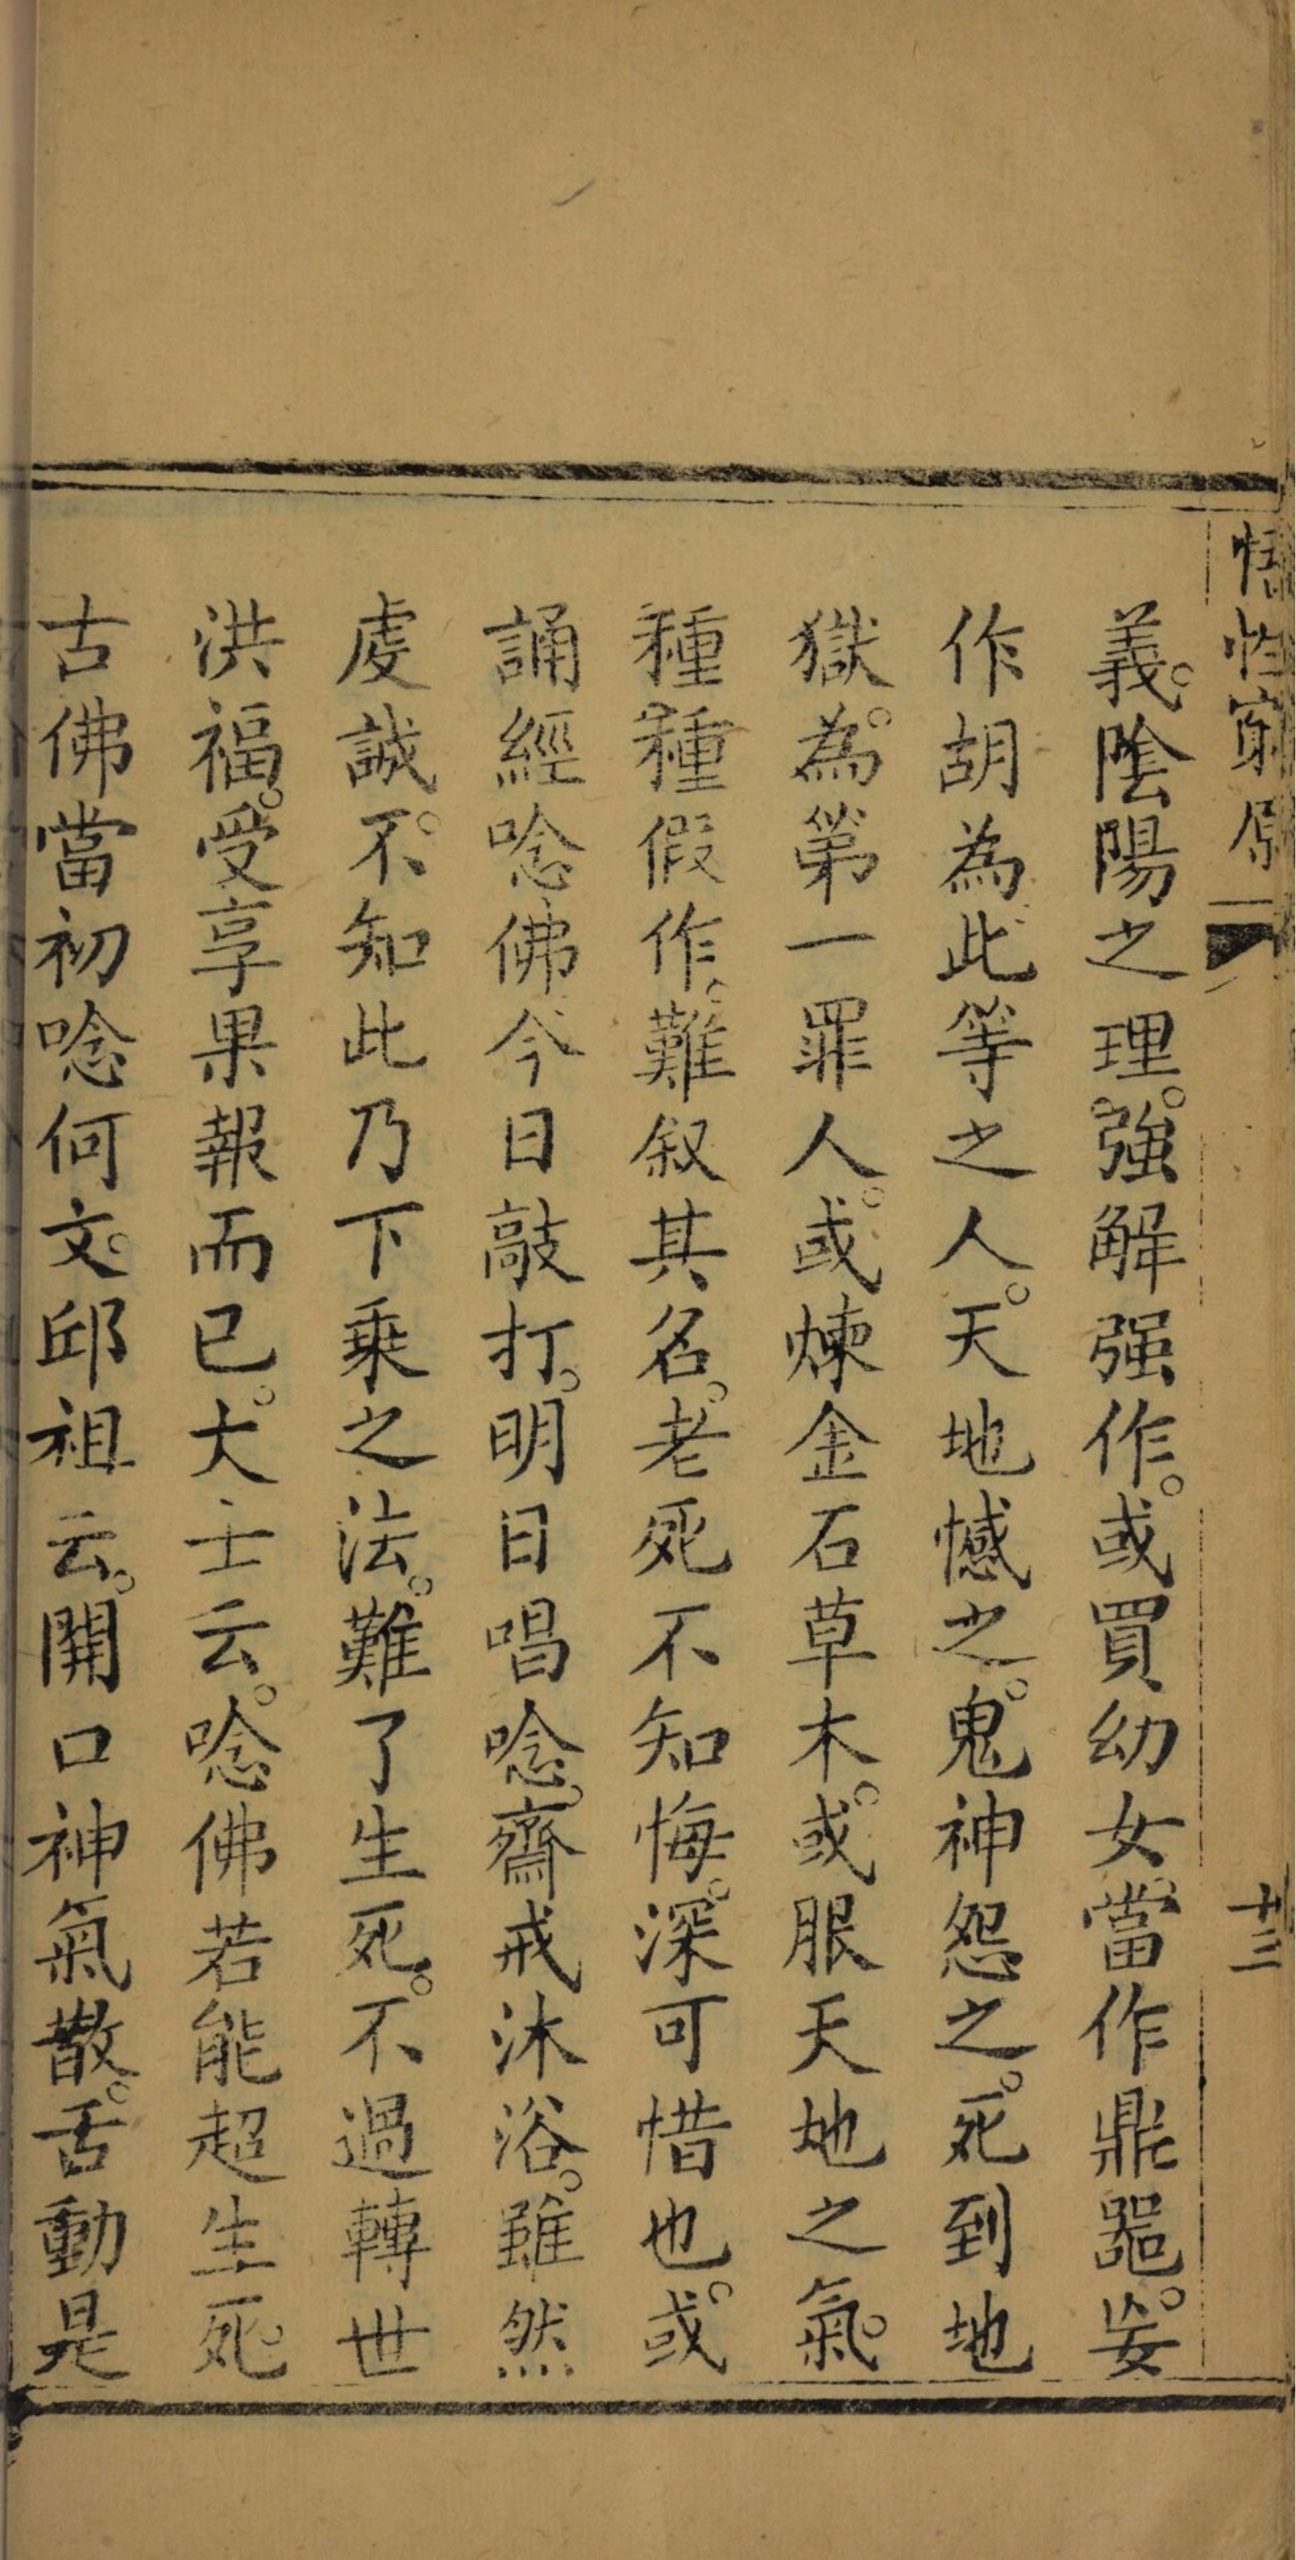 悟性窮原
十三
義。陰陽之理。強解强作。或買幼女。當作鼎器。妄
作胡為。此等之人。天地憾之。鬼神怨之。死到地
獄。為第一罪人。或煉金石草木。或服天地之氣。
種種假作。難叙其名。老死不知悔。深可惜也。或
誦經唸佛。今日敲打。明日唱唸。齋戒沐浴。雖然
虔誠。不知此乃下乘之法。難了生死。不過轉世
洪福。受享果報而已。大士云。唸佛若能超生死。
古佛當初唸何文。邱祖云。開口神氣散。舌動是